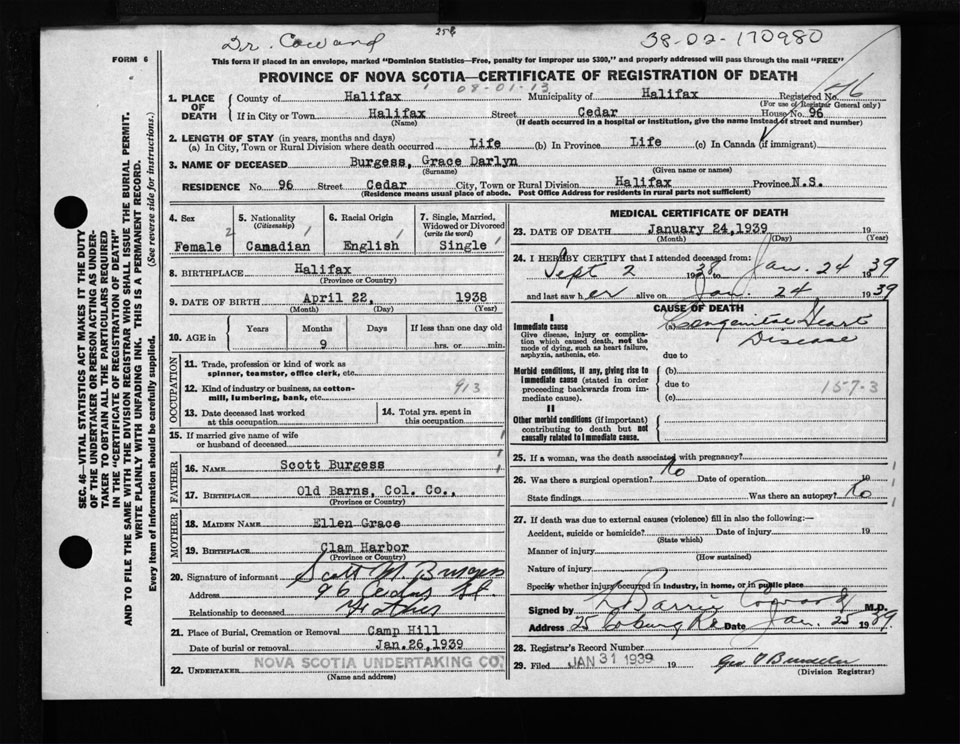 258
Dr. Coward 38-02-170980
FORM 6
This form if placed in an envelope, marked "Dominion Statistics—Free, penalty for improper use $300," and properly addressed will pass through the mail "FREE"
PROVINCE OF NOVA SCOTIA—CERTIFICATE OF REGISTRATION OF DEATH
08-01-13
1. PLACE OF DEATH County of Halifax Municipality of Halifax Registered No. 46
(For use of Registrar General only)
If in City or Town Halifax Street Cedar House No. 96
(Name) (If death occurred in a hospital or institution, give the name instead of street and number)
2. LENGTH OF STAY (in years, months and days)
(a) In City, Town or Rural Division where death occurred Life (b) In Province Life (c) In Canada (if immigrant)
3. NAME OF DECEASED Burgess, Grace Darlyn
(Surname) (Given name or names)
RESIDENCE No. 96 Street Cedar City, Town or Rural Division Halifax Province N.S.
(Residence means usual place of abode. Post Office Address for residents in rural parts not sufficient)
4. Sex 5. Nationality (Citizenship) 6. Racial Origin 7. Single, Married, Widowed or Divorced (write the word)
Female 2 Canadian 1 English 1 Single 1
8. BIRTHPLACE Halifax
(Province or Country)
9. DATE OF BIRTH April 22, 1938
(Month) (Day) (Year)
10. AGE in Years Months Days If less than one day old
9 hrs. or min.
OCCUPATION
11. Trade, profession or kind of work as spinner, teamster, office clerk, etc.
12. Kind of industry or business, as cotton-mill, lumbering, bank, etc. 913
13. Date deceased last worked at this occupation 14. Total yrs. spent in this occupation
15. If married give name of wife or husband of deceased
FATHER
16. NAME Scott Burgess
17. BIRTHPLACE Old Barns, Col. Co.,
(Province or Country)
MOTHER
18. MAIDEN NAME Ellen Grace
19. BIRTHPLACE Clam Harbor
(Province or Country)
20. Signature of informant Scott M. Burgess
Address 96 Cedar St.
Relationship to deceased Father
21. Place of Burial, Cremation or Removal Camp Hill
Date of burial or removal Jan.26,1939
22. UNDERTAKER NOVA SCOTIA UNDERTAKING CO.
(Name and address)
MEDICAL CERTIFICATE OF DEATH
23. DATE OF DEATH January 24,1939 19
(Month) (Day) (Year)
24. I HEREBY CERTIFY that I attended deceased from:
Sept 2 1938 Jan. 24 1939
and last saw her alive on Jan. 24 1939
CAUSE OF DEATH
I
Immediate cause (a) Congenital Heart
Give disease, injury or complication which caused death, not the mode of dying, such as heart failure, asphyxia, asthenia, etc. Disease
due to
Morbid conditions, if any, giving rise to immediate cause (stated in order proceeding backwards from immediate cause). (b)
due to 157-3
(c)
II
Other morbid conditions (if important) contributing to death but not causally related to immediate cause.
25. If a woman, was the death associated with pregnancy?
26. Was there a surgical operation? No Date of operation 19
State findings Was there an autopsy? No
27. If death was due to external causes (violence) fill in also the following:—
Accident, suicide or homicide? Date of injury 19
(State which)
Manner of injury
(How sustained)
Nature of injury
Specify whether injury occurred in industry, in home, or in public place
Signed by Barrie Coward M.D.
Address 25 Coburg Rd Date Jan. 25 1939
28. Registrar's Record Number
29. Filed JAN 31 1939 19
(Division Registrar)
SEC. 46—VITAL STATISTICS ACT MAKES IT THE DUTY
OF THE UNDERTAKER OR PERSON ACTING AS UNDER-
TAKER TO OBTAIN ALL THE PARTICULARS REQUIRED
IN THE "CERTIFICATE OF REGISTRATION OF DEATH"
AND TO FILE THE SAME WITH THE DIVISION REGISTRAR WHO SHALL ISSUE THE BURIAL PERMIT.
WRITE PLAINLY WITH UNFADING INK. THIS IS A PERMANENT RECORD.
Every item of information should be carefully supplied. (See reverse side for instructions.)